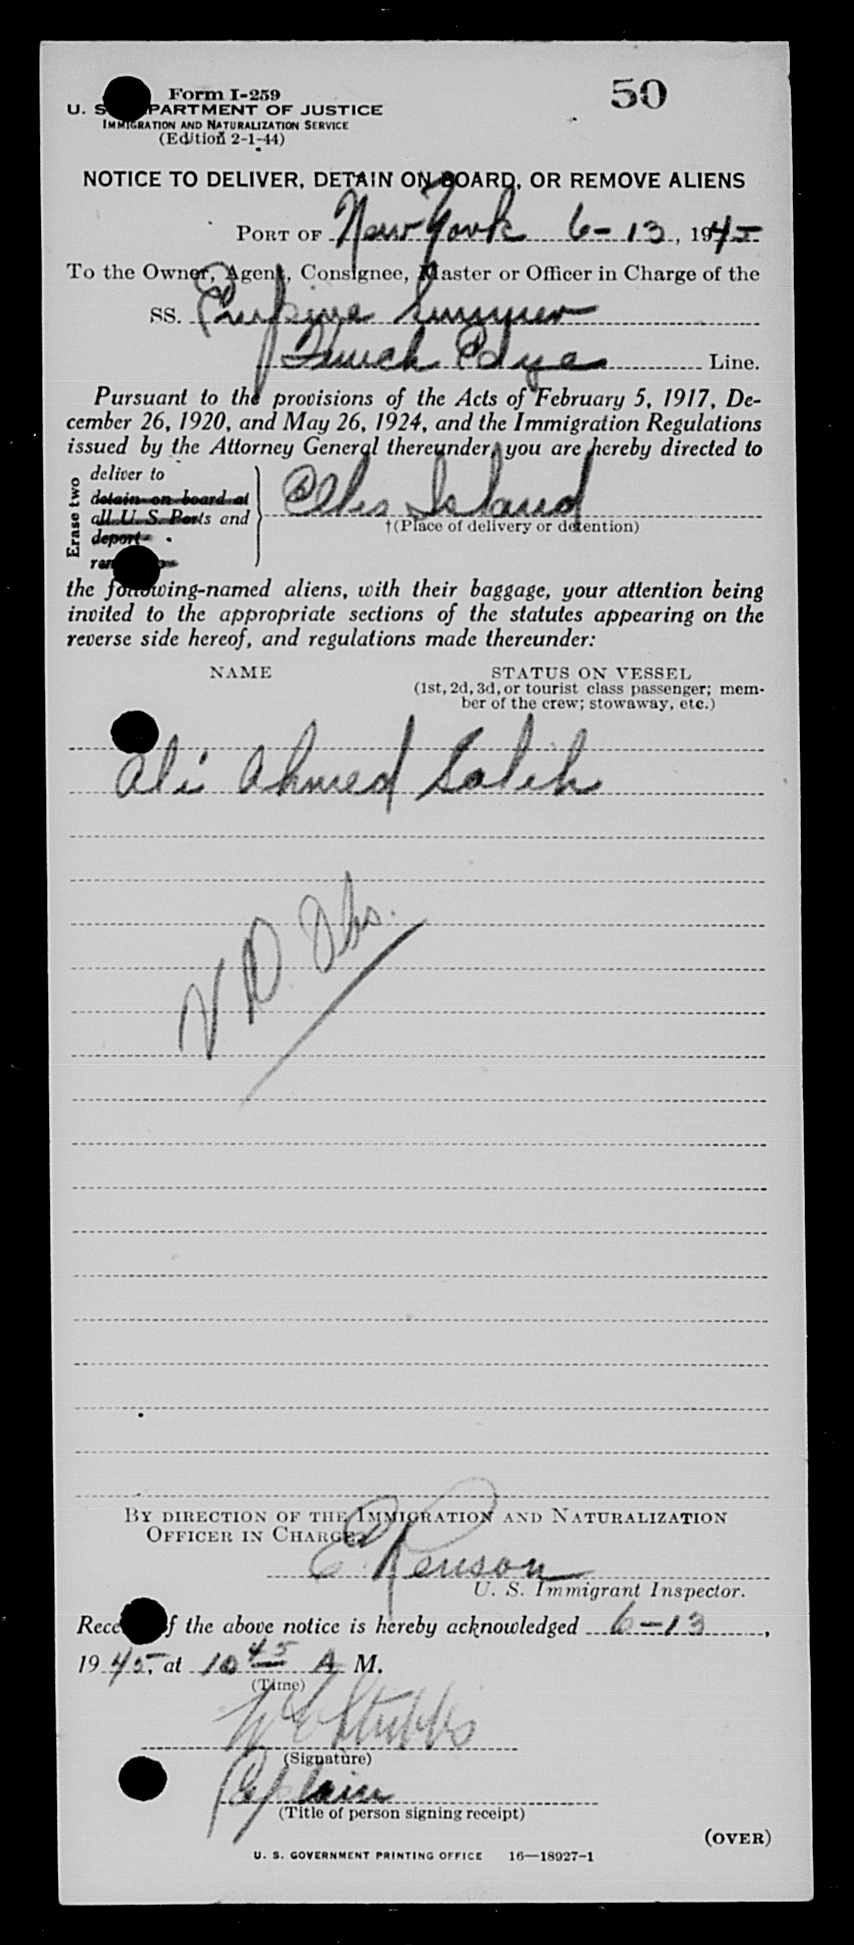 50
Form I-259
U. S. DEPARTMENT OF JUSTICE
IMMIGRATION AND NATURALIZATION SERVICE
(Edition 2-1-44)
NOTICE TO DELIVER, DETAIN ON BOARD, OR REMOVE ALIENS
PORT OF New York 6-13, 1945
To the Owner, Agent, Consignee, Master or Officer in Charge of the
SS.
Line.
Pursuant to the provisions of the Acts of February 5, 1917, De-
cember 26, 1920, and May 26, 1924, and the Immigration Regulations
issued by the Attorney General thereunder, you are hereby directed to
Erase two
deliver to
detain on board at
all U. S. Ports and
deport
Ellis Island
†(Place of delivery or detention)
the following-named aliens, with their baggage, your attention being
invited to the appropriate sections of the statutes appearing on the
reverse side hereof, and regulations made thereunder:
NAME STATUS ON VESSEL
(1st, 2d, 3d, or tourist class passenger; mem-
ber of the crew; stowaway, etc.)
Ali Ahmed Salih
V D. Obs.
BY DIRECTION OF THE IMMIGRATION AND NATURALIZATION
OFFICER IN CHARGE,
E. Renson
U. S. Immigrant Inspector.
Receipt of the above notice is hereby acknowledged 6-13,
1945, at 10 45 A. M.
(Time)
W E Stubbs
(Signature)
Captain
(Title of person signing receipt)
(OVER)
U. S. GOVERNMENT PRINTING OFFICE 16—18927-1